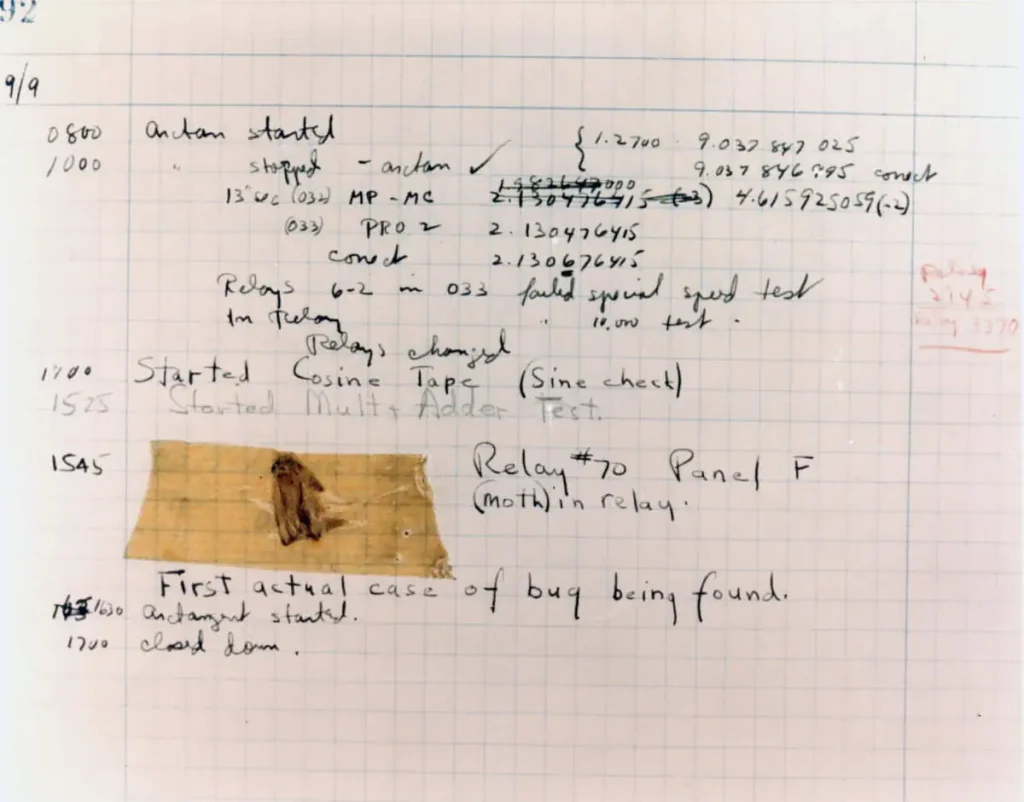 92
9/9
0800 arctan started { 1.2700 9.037 847 025
1000 " stopped - arctan ✓ 9.037 846 995 correct
13" uc (032) MP - MC 2.130476415 (-3) 4.615925059(-2)
(033) PRO 2 2.130476415
correct 2.130676415
Relays 6-2 in 033 failed special speed test
In Relay " 10,000 test .
Relays changed
Relay
2145
Relay 3370
1700 Started Cosine Tape (Sine check)
1525 Started Mult + Adder Test.
1545 Relay #70 Panel F
(moth) in relay.
First actual case of bug being found.
1630 arctangent started.
1700 closed down.